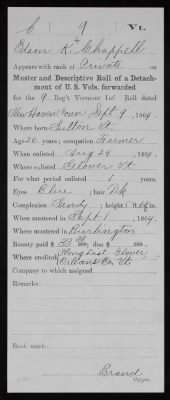 C 9 Vt.
Edson K. Chappell
Appears with rank of Private on
Muster and Descriptive Roll of a Detach-
ment of U. S. Vols. forwarded
for the 9 Reg't Vermont Inf. Roll dated
New Haven Conn Sept 9, 1864.
Where born Sutton Vt.
Age 26 years; occupation Farmer
When enlisted Aug 24, 1864.
Where enlisted Glover Vt.
For what period enlisted 1 years.
Eyes Blue; hair Dk
Complexion Sandy; height 5 ft. in.
When mustered in Sept 1, 1864.
Where mustered in Burlington
Bounty paid $ 33 100; due $ 100
Where credited Cong Dist. Glover
Orleans Co. Vt.
Company to which assigned
Remarks:
Book mark:
Brand
Copyist.